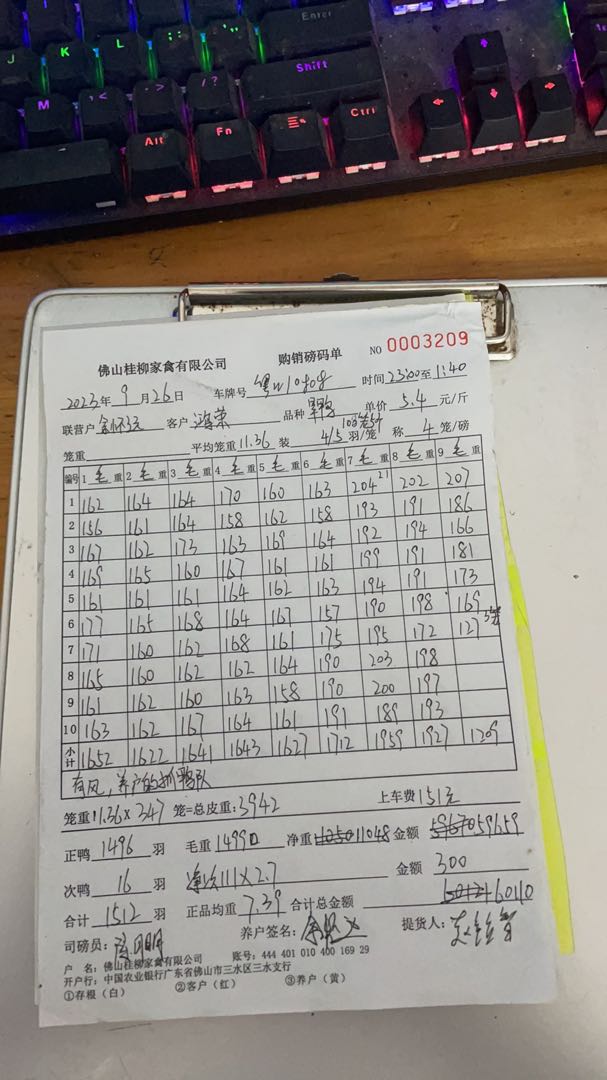 J K L : ; " '
Enter
M , < . > / ? Shift
Alt Fn Ctrl
佛山桂柳家禽有限公司 购销磅码单 NO 0003209
2023年 9月26日 车牌号 粤W10808 时间 23:00至 1:40
联营户 客户 鸿荣 品种 单价 5.4 元/斤
笼重 平均笼重 11.36 装 4/5 羽/笼 称 4 笼/磅
编号 1 毛重 2 毛重 3 毛重 4 毛重 5 毛重 6 毛重 7 毛重 8 毛重 9 毛重
1 162 164 164 170 160 163 204 21 202 207
2 156 161 164 158 162 158 193 191 186
3 167 162 173 163 169 164 192 194 166
4 169 165 160 167 161 161 199 191 181
5 161 161 161 164 162 163 194 191 173
6 177 165 168 164 167 157 190 198 169
7 171 160 162 168 161 175 195 172 127 3笼
8 165 160 162 162 164 190 203 198
9 161 162 160 163 158 190 200 197
10 163 162 167 164 161 191 189 193
小计 1652 1622 1641 1643 1627 1712 1959 1927 1209
有风,养户的抓鸭队
笼重 11.36×347 笼=总皮重: 3942 上车费 151元
正鸭 1496 羽 毛重 14990 净重 11048 金额 59659
次鸭 16 羽 111×2.7 金额 300
合计 1512 羽 正品均重 7.39 合计总金额 60110
司磅员: 养户签名: 提货人:
户 名: 佛山桂柳家禽有限公司 账号: 444 401 010 400 169 29
开户行: 中国农业银行广东省佛山市三水区三水支行
①存根(白) ②客户(红) ③养户(黄)